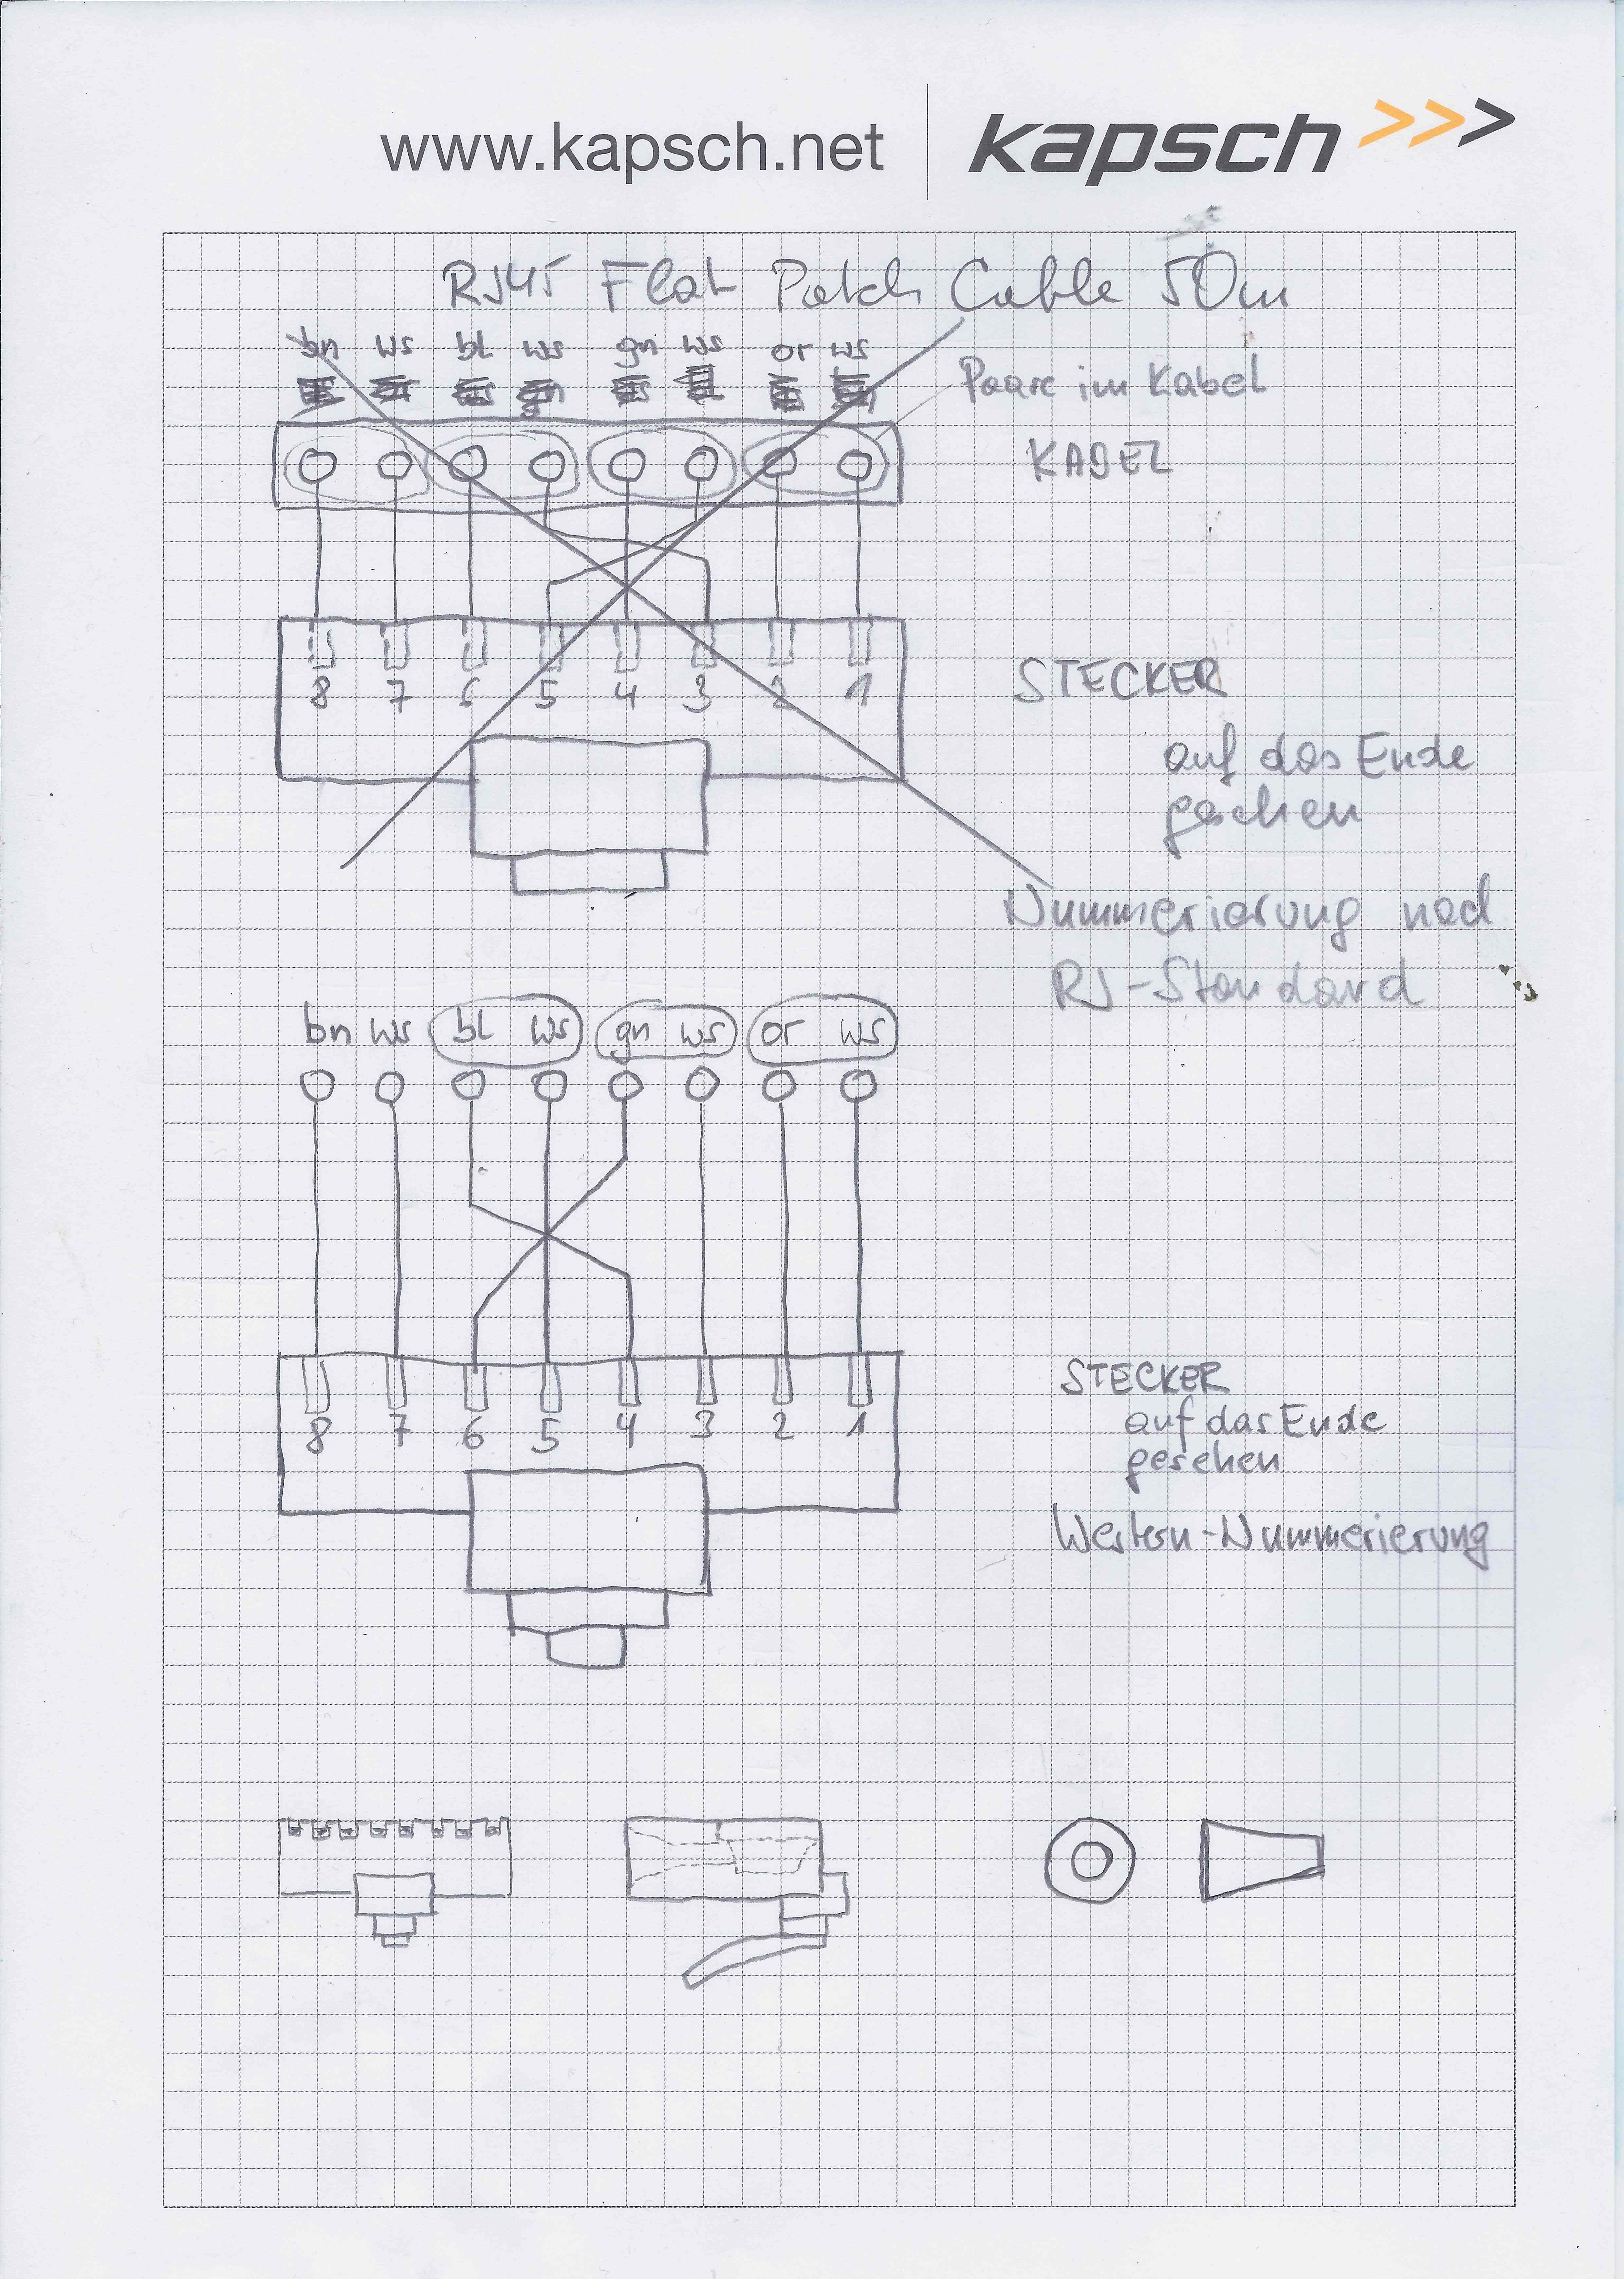 www.kapsch.net
kapsch >>>
RJ45 Flat Patch Cable 50m
bn ws bl ws gn ws or ws
Paare im Kabel
KABEL
8 7 6 5 4 3 2 1
STECKER
auf das Ende
gesehen
Nummerierung nach
RJ-Standard
bn ws bl ws gn ws or ws
8 7 6 5 4 3 2 1
STECKER
auf das Ende
gesehen
Western-Nummerierung